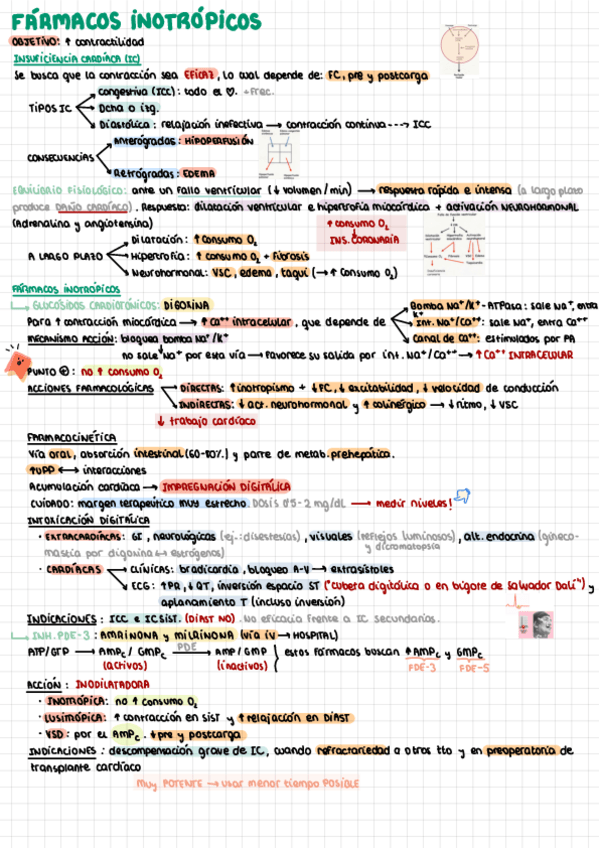 FÁRMACOS INOTRÓPICOS
OBJETIVO: ↑ contractilidad
INSUFICIENCIA CARDÍACA (IC)
Se busca que la contracción sea EFICAZ, lo cual depende de: FC, pre y postcarga
TIPOS IC
Congestiva (ICC): todo el ♡. +Frec.
Dcha o izq.
Diastólica: relajación inefectiva → contracción continua ---> ICC
CONSECUENCIAS
Anterógradas: HIPOPERFUSIÓN
Retrógradas: EDEMA
EQUILIBRIO FISIOLÓGICO: ante un fallo ventricular (↓ volumen/min) → respuesta rápida e intensa (a largo plazo
produce DAÑO CARDÍACO). Respuesta: dilatación ventricular e hipertrofia miocárdica + activación NEUROHORMONAL
(Adrenalina y angiotensina)
↑ consumo O₂
↓
INS. CORONARIA
A LARGO PLAZO
Dilatación: ↑ consumo O₂
Hipertrofia: ↑ consumo O₂ + Fibrosis
Neurohormonal: VSC, edema, taqui (→ ↑ consumo O₂)
FÁRMACOS INOTRÓPICOS
↳ GLUCÓSIDOS CARDIOTÓNICOS: DIGOXINA
Para ↑ contracción miocárdica → ↑ Ca⁺⁺ intracelular, que depende de
Bomba Na⁺/K⁺-ATPasa: sale Na⁺, entra K⁺
Int. Na⁺/Ca⁺⁺: sale Na⁺, entra Ca⁺⁺
Canal de Ca⁺⁺: estimulados por PA
MECANISMO ACCIÓN: bloquea bomba Na⁺/K⁺
no sale Na⁺ por esta vía → favorece su salida por int. Na⁺/Ca⁺⁺ → ↑ Ca⁺⁺ INTRACELULAR
PUNTO ⊕: no ↑ consumo O₂
ACCIONES FARMACOLÓGICAS
DIRECTAS: ↑ inotropismo + ↓ FC, ↓ excitabilidad, ↓ velocidad de conducción
INDIRECTAS: ↓ act. neurohormonal y ↑ colinérgico → ↓ ritmo, ↓ VSC
↓ trabajo cardíaco
FARMACOCINÉTICA
Vía oral, absorción intestinal (60-80%) y parte de metab. prehepática.
↑UPP ↔ interacciones
Acumulación cardíaca → IMPREGNACIÓN DIGITÁLICA
CUIDADO: margen terapeútico muy estrecho. DOSIS 0'5-2 mg/dL → medir niveles!
INTOXICACIÓN DIGITÁLICA
· EXTRACARDÍACAS: GI, neurológicas (ej.: disestesias), visuales (reflejos luminosos), alt. endocrina (gineco-
y dicromatopsia
mastia por digoxina ↔ estrógenos)
· CARDÍACAS
CLÍNICAS: bradicardia, bloqueo A-V → extrasístoles
ECG: ↑PR, ↓QT, inversión espacio ST ("cubeta digitálica o en bigote de Salvador Dalí") y
aplanamiento T (incluso inversión)
INDICACIONES: ICC e IC SIST. (DIAST NO). No eficacia frente a IC secundarias.
↳ INH. PDE-3: AMRINONA y MILRINONA (vía iv → HOSPITAL)
ATP/GTP → AMPc / GMPc —PDE→ AMP/GMP } estos fármacos buscan ↑ AMPc y GMPc
(activos) (inactivos) PDE-3 PDE-5
ACCIÓN: INODILATADORA
· INOTRÓPICA: no ↑ consumo O₂
· LUSITRÓPICA: ↑ contracción en SIST y ↑ relajación en DIAST
· VSD: por el AMPc. ↓ pre y postcarga
INDICACIONES: descompensación grave de IC, cuando refractariedad a otros tto y en preoperatoria de
transplante cardíaco
Muy POTENTE → usar menor tiempo POSIBLE